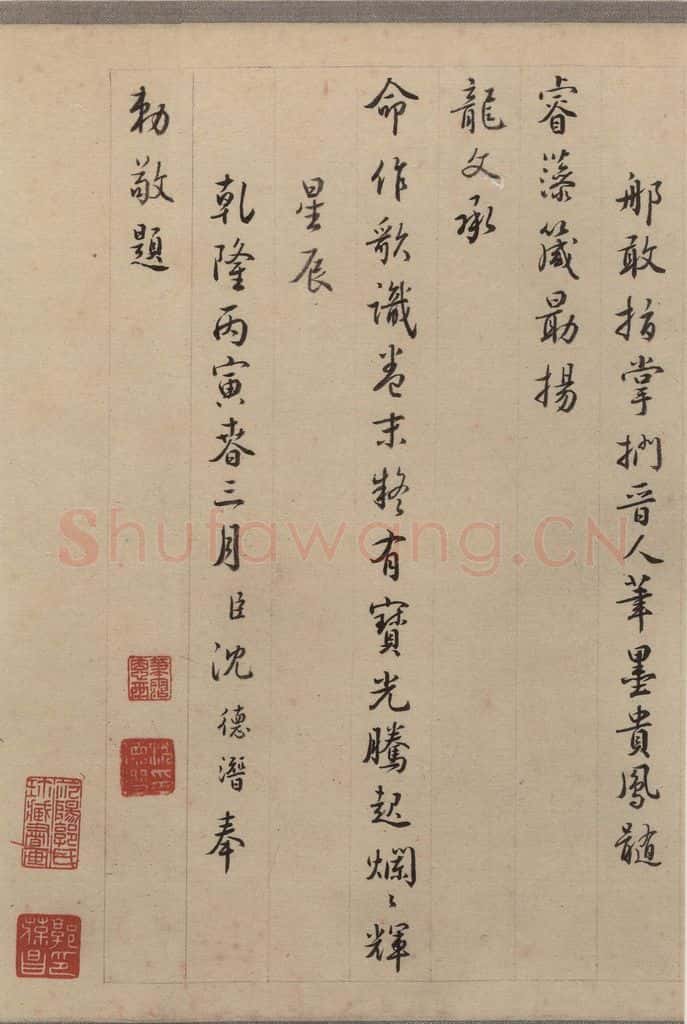 那敢指掌捫晋人筆墨貴鳳髓
睿藻箴勗揚
龍文承
命作歌識卷末疑有寶光騰起爛々輝
星辰
乾隆丙寅春三月臣沈德潛奉
勅敬題
郭印葆昌
Shufawang.CN